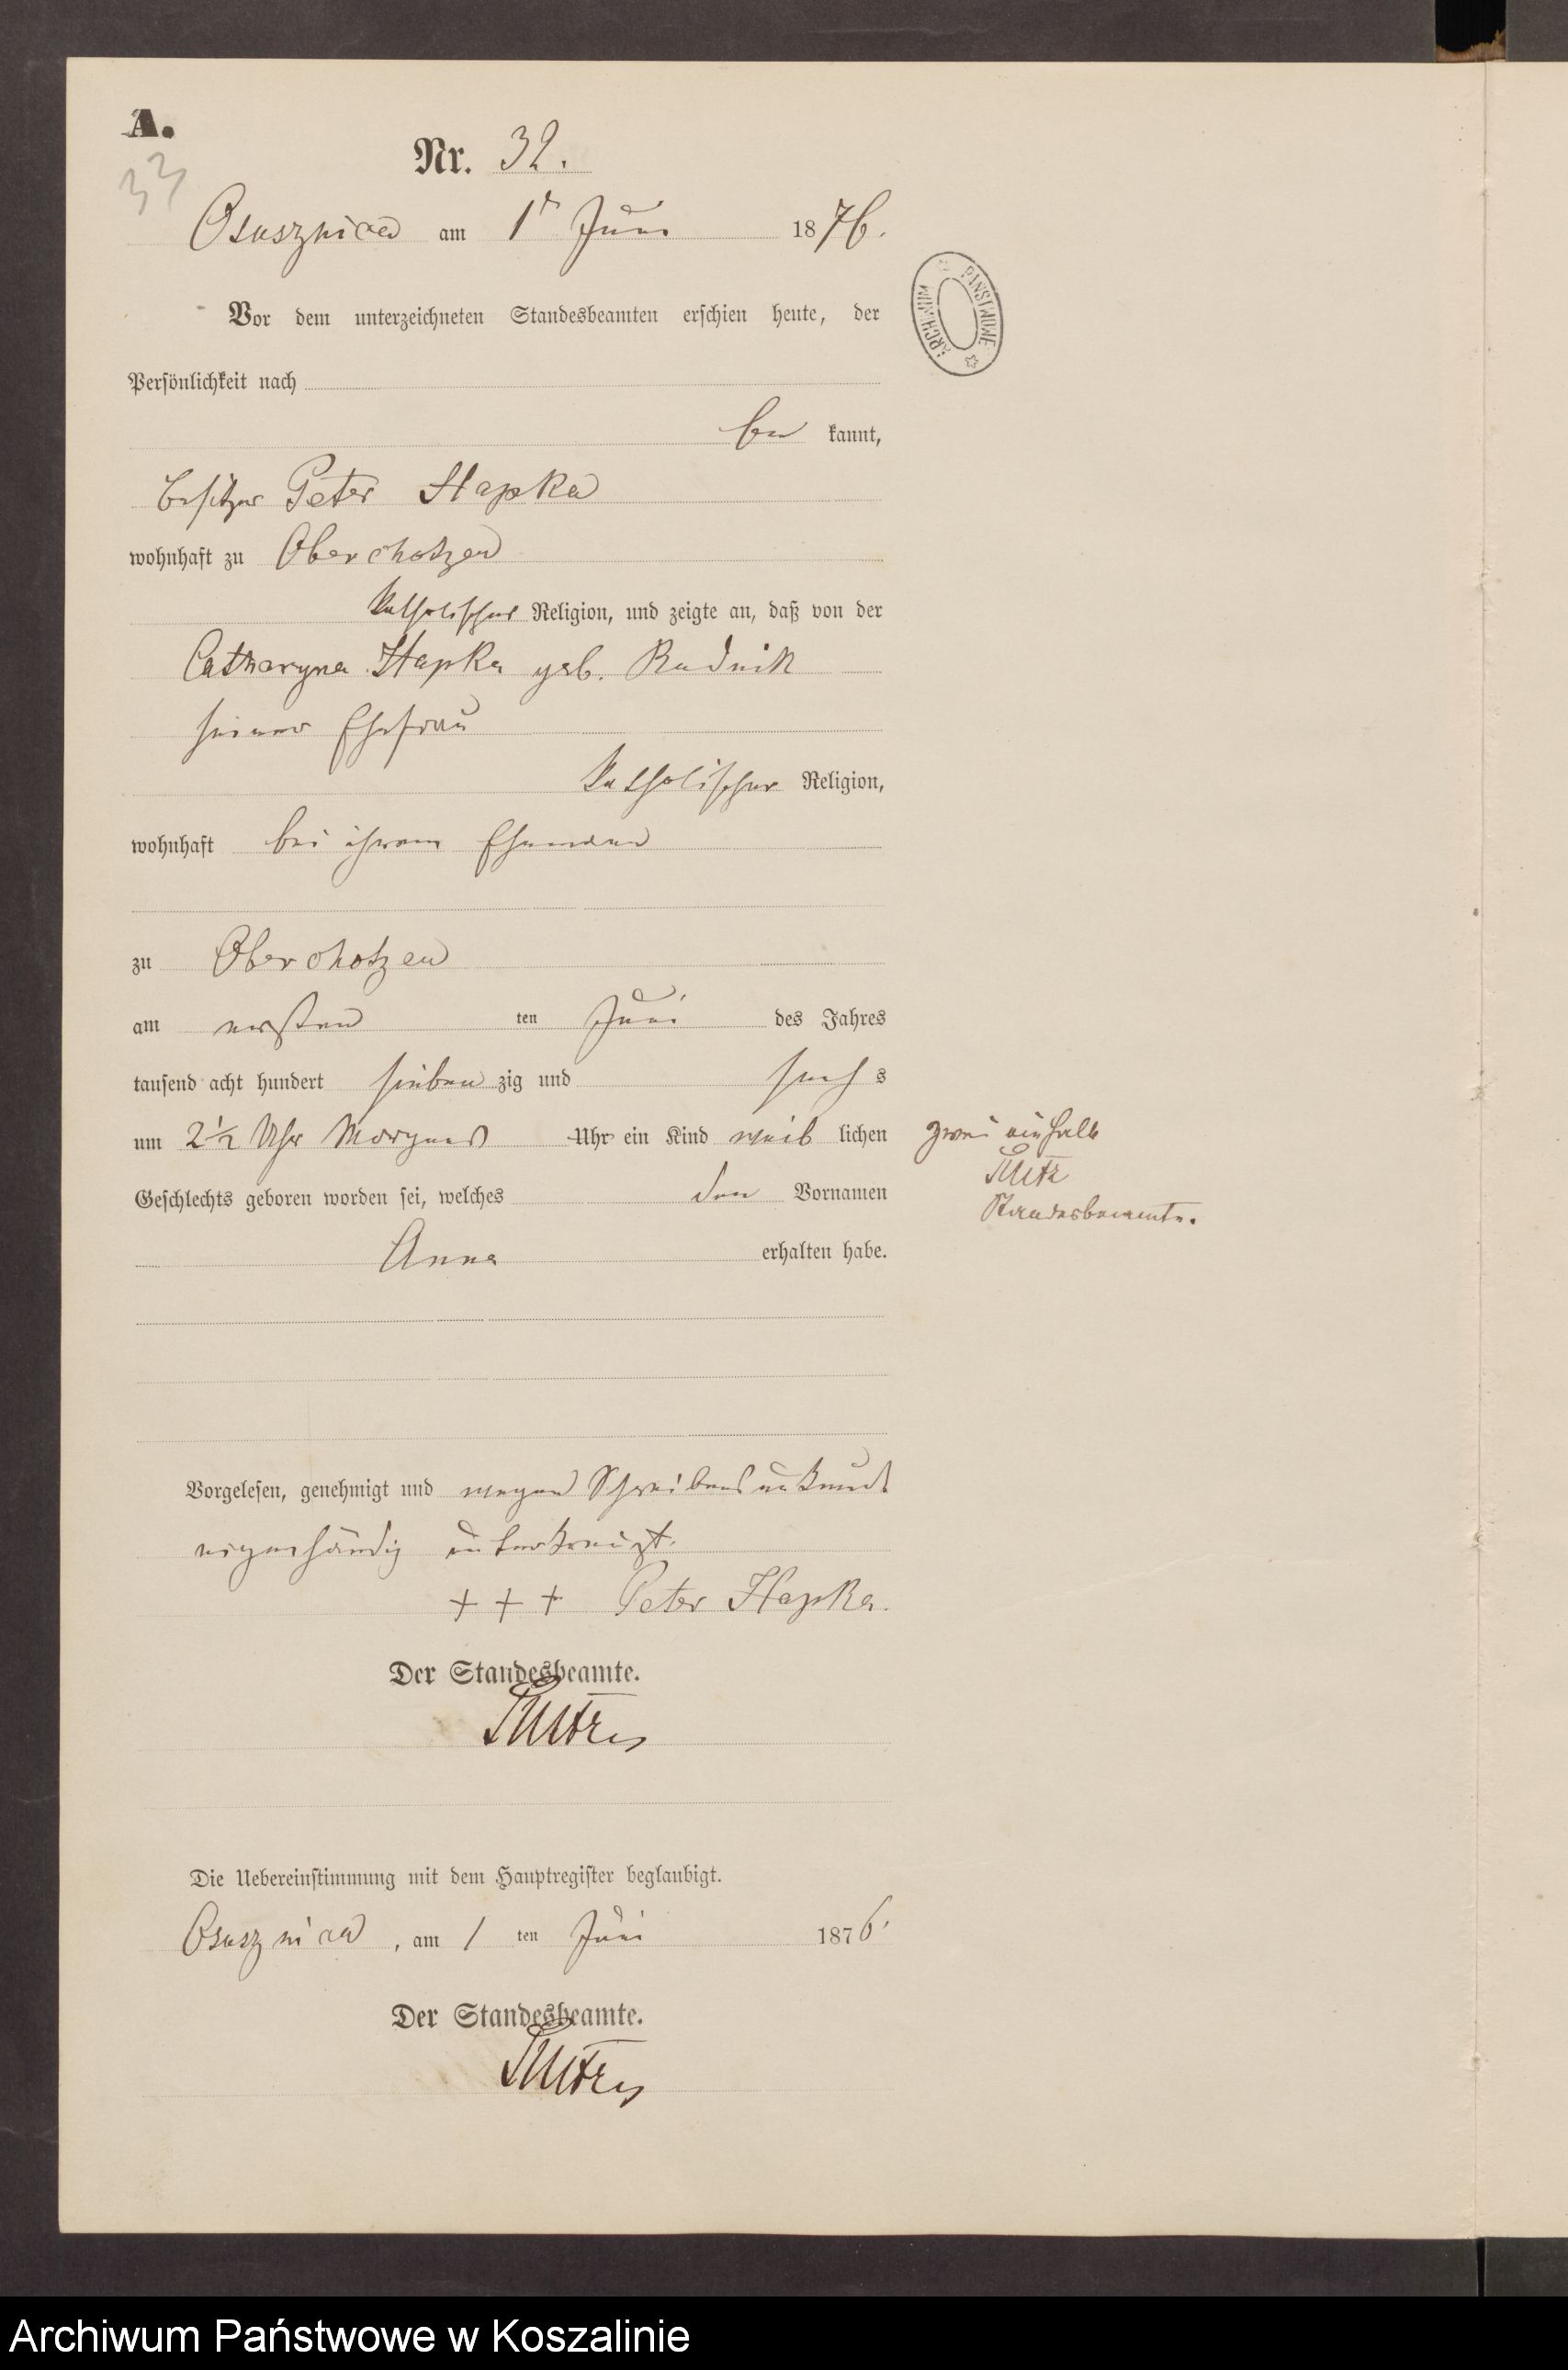 A.
33
Nr. 32.
Osusznica am 1t Juni 1876.
Vor dem unterzeichneten Standesbeamten erschien heute, der
Persönlichkeit nach
be kannt,
Besitzer Peter Stapka
wohnhaft zu Oberchotzen
katholischer Religion, und zeigte an, daß von der
Catharyna Stapka geb. Rudnik
seiner Ehefrau
katholischer Religion,
wohnhaft bei ihrem Ehemann
zu Oberchotzen
am ersten ten Juni des Jahres
tausend acht hundert sieben zig und sechs
um 2 1/2 Uhr Morgens Uhr ein Kind weib lichen
zwei einhalb
Geschlechts geboren worden sei, welches den Vornamen
Standesbeamte.
Anna erhalten habe.
Vorgelesen, genehmigt und wegen Schreibensunkunde
eigenhändig unterkreuzt.
+ + + Peter Stapka.
Der Standesbeamte.
Die Uebereinstimmung mit dem Hauptregister beglaubigt.
Osusznica, am 1 ten Juni 1876.
Der Standesbeamte.
ARCHIWUM PAŃSTWOWE
Archiwum Państwowe w Koszalinie